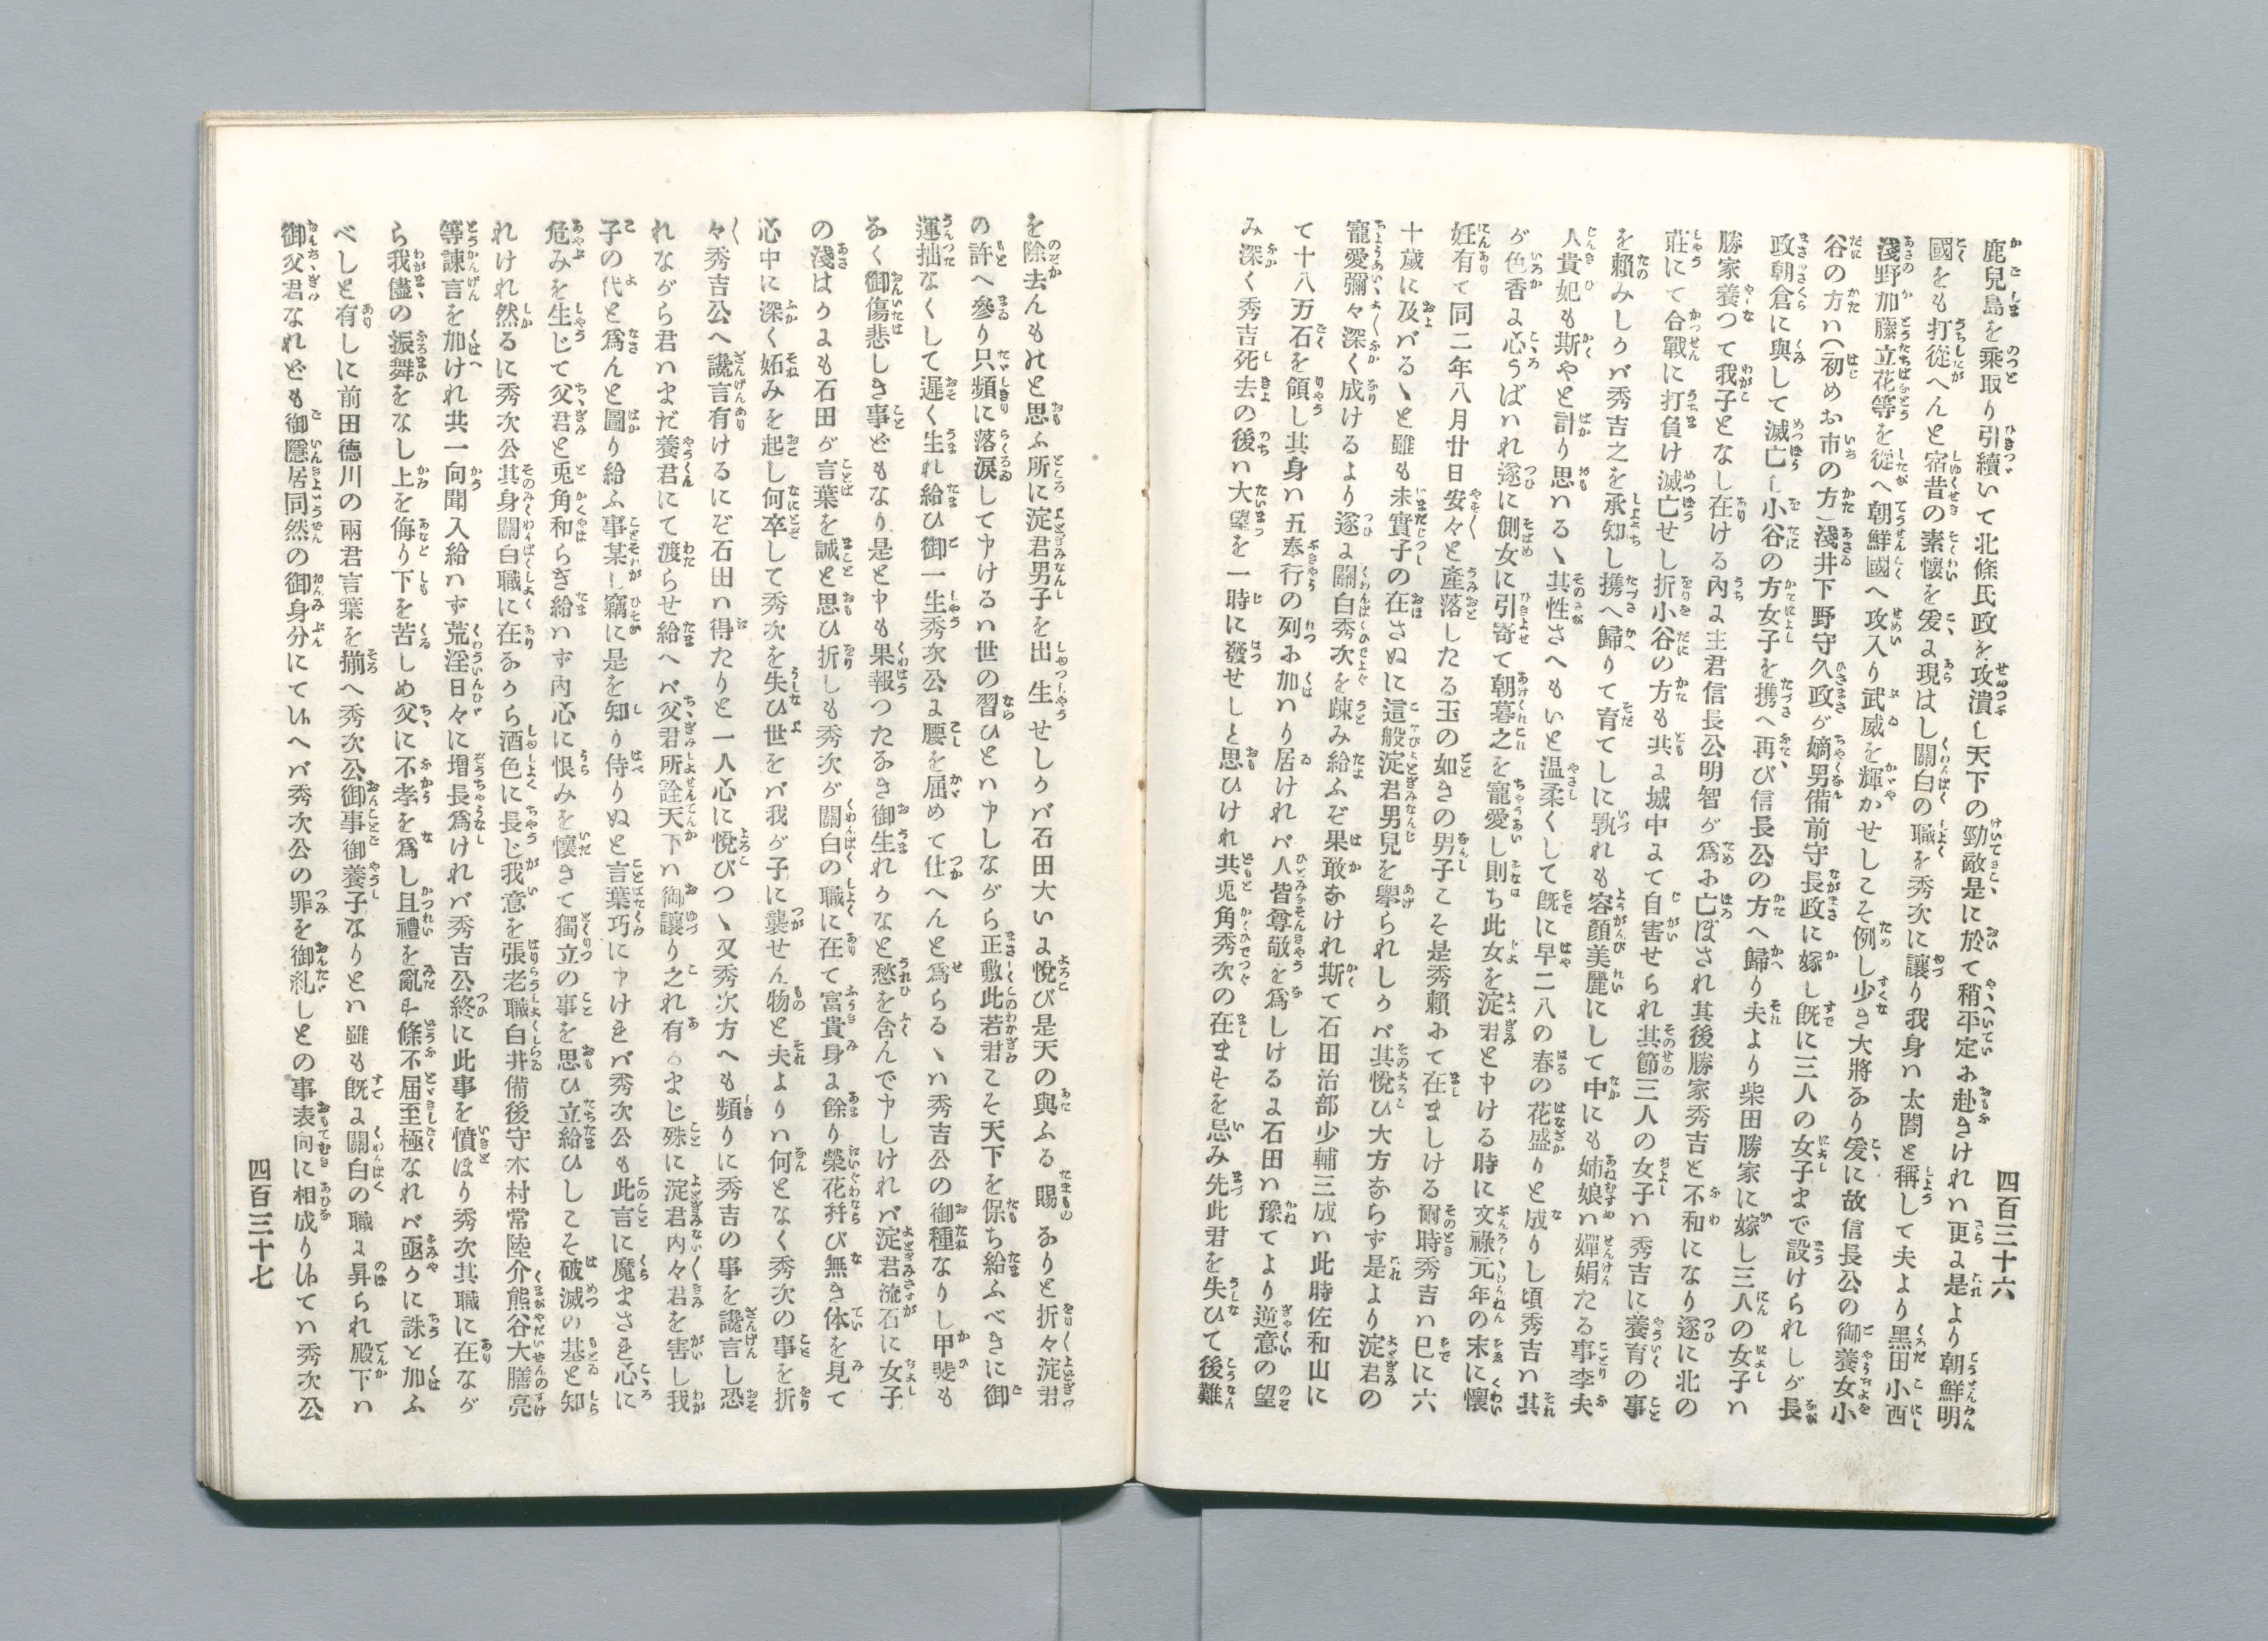 四百三十六
鹿兒島を乘取り引續いて北條氏政を攻潰し天下の勁敵是に於て稍平定に赴きけれハ更に是より朝鮮明
國をも打從へんと宿昔の素懷を爰に現はし關白の職を秀次に讓り我身ハ太閤と稱して夫より黑田小西
淺野加藤立花等を從へ朝鮮國へ攻入り武威を輝かせしこそ例し少き大將なり爰に故信長公の御養女小
谷の方ハ(初めお市の方)淺井下野守久政が嫡男備前守長政に嫁し既に三人の女子まで設けられしが長
政朝倉に與して滅亡し小谷の方女子を携へ再び信長公の方へ歸り夫より柴田勝家に嫁し三人の女子ハ
勝家養つて我子となし在ける內に主君信長公明智が爲に亡ぼされ其後勝家秀吉と不和になり遂に北の
莊にて合戰に打負け滅亡せし折小谷の方も共に城中にて自害せられ其節三人の女子ハ秀吉に養育の事
を賴みしかバ秀吉之を承知し携へ歸りて育てしに孰れも容顏美麗にして中にも姉娘ハ嬋娟たる事李夫
人貴妃も斯やと計り思ハるヽ其性さへもいと温柔くして既に早二八の春の花盛りと成りし頃秀吉ハ其
が色香に心うばハれ遂に側女に引寄て朝暮之を寵愛し則ち此女を淀君と申ける時に文祿元年の末に懷
妊有て同二年八月廿日安々と產落したる玉の如きの男子こそ是秀賴にて在ましける爾時秀吉ハ已に六
十歲に及バるヽと雖も未實子の在さぬに這般淀君男兒を擧られしかバ其悅ひ大方ならず是より淀君の
寵愛彌々深く成けるより遂に關白秀次を疎み給ふぞ果敢なけれ斯て石田治部少輔三成ハ此時佐和山に
て十八万石を領し其身ハ五奉行の列に加ハり居けれバ人皆尊敬を爲しけるに石田ハ豫てより逆意の望
み深く秀吉死去の後ハ大望を一時に發せしと思ひけれ共兎角秀次の在ますを忌み先此君を失ひて後難
を除去んものと思ふ所に淀君男子を出生せしかバ石田大いに悅び是天の與ふる賜なりと折々淀君
の許へ參り只頻に落淚して申けるハ世の習ひとハ申しながら正敷此若君こそ天下を保ち給ふべきに御
運拙なくして遲く生れ給ひ御一生秀次公に腰を屈めて仕へんと爲らるヽハ秀吉公の御種なりし甲斐も
なく御傷悲しき事どもなり是と申も果報つたなき御生れかなと愁を含んで申しけれバ淀君流石に女子
の淺はかにも石田が言葉を誠と思ひ折しも秀次が關白の職に在て富貴身に餘り榮花幷び無き体を見て
心中に深く妬みを起し何卒して秀次を失ひ世をバ我が子に襲せん物と夫よりハ何となく秀次の事を折
々秀吉公へ讒言有けるにぞ石田ハ得たりと一人心に悅びつヽ又秀次方へも頻りに秀吉の事を讒言し恐
れながら君ハまだ養君にて渡らせ給へバ父君所詮天下ハ御讓り之れ有るまじ殊に淀君內々君を害し我
子の代と爲んと圖り給ふ事某し竊に是を知り侍りぬと言葉巧に申けれバ秀次公も此言に魔まされ心に
危みを生じて父君と兎角和らぎ給ハず內心に恨みを懷きて獨立の事を思ひ立給ひしこそ破滅の基と知
れけれ然るに秀次公其身關白職に在ながら酒色に長じ我意を張老職白井備後守木村常陸介熊谷大膳亮
等諫言を加けれ共一向聞入給ハず荒淫日々に增長爲けれバ秀吉公終に此事を憤ほり秀次其職に在なが
ら我儘の振舞をなし上を侮り下を苦しめ父に不孝を爲し且禮を亂す條不屆至極なれバ亟かに誅と加ふ
べしと有しに前田德川の兩君言葉を揃へ秀次公御事御養子なりとハ雖も既に關白の職に昇られ殿下ハ
御父君なれども御隱居同然の御身分にて候へバ秀次公の罪を御糺しとの事表向に相成り候てハ秀次公
四百三十七